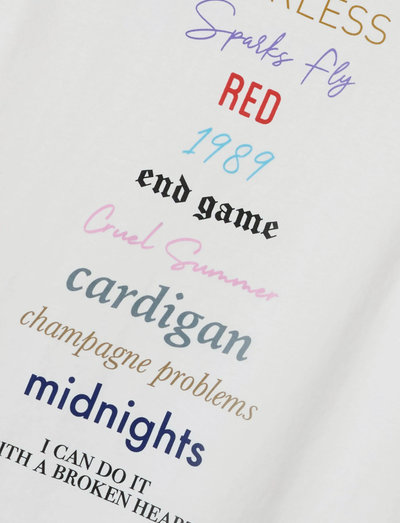 RLESS
Sparks Fly
RED
1989
end game
Cruel Summer
cardigan
champagne problems
midnights
I CAN DO IT
ITH A BROKEN HEAR